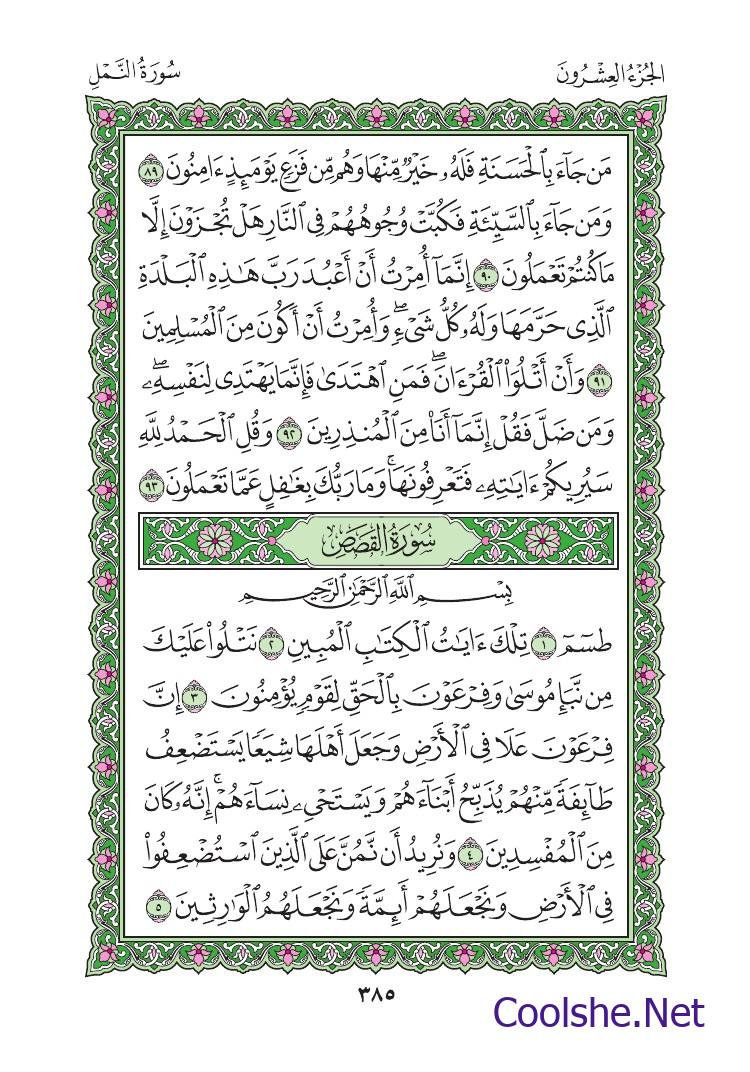 الجُزْءُ العِشْرُونَ
سُورَةُ النَّمْلِ
مَن جَآءَ بِٱلْحَسَنَةِ فَلَهُۥ خَيْرٌ مِّنْهَا وَهُم مِّن فَزَعٍ يَوْمَئِذٍ ءَامِنُونَ ٨٩
وَمَن جَآءَ بِٱلسَّيِّئَةِ فَكُبَّتْ وُجُوهُهُمْ فِى ٱلنَّارِ هَلْ تُجْزَوْنَ إِلَّا
مَا كُنتُمْ تَعْمَلُونَ ٩٠ إِنَّمَآ أُمِرْتُ أَنْ أَعْبُدَ رَبَّ هَٰذِهِ ٱلْبَلْدَةِ
ٱلَّذِى حَرَّمَهَا وَلَهُۥ كُلُّ شَىْءٍۖ وَأُمِرْتُ أَنْ أَكُونَ مِنَ ٱلْمُسْلِمِينَ
٩١ وَأَنْ أَتْلُوَا۟ ٱلْقُرْءَانَۖ فَمَنِ ٱهْتَدَىٰ فَإِنَّمَا يَهْتَدِى لِنَفْسِهِۦۖ
وَمَن ضَلَّ فَقُلْ إِنَّمَآ أَنَا۠ مِنَ ٱلْمُنذِرِينَ ٩٢ وَقُلِ ٱلْحَمْدُ لِلَّهِ
سَيُرِيكُمْ ءَايَٰتِهِۦ فَتَعْرِفُونَهَاۚ وَمَا رَبُّكَ بِغَٰفِلٍ عَمَّا تَعْمَلُونَ ٩٣
سُورَةُ القَصَصِ
بِسْمِ ٱللَّهِ ٱلرَّحْمَٰنِ ٱلرَّحِيمِ
طسٓمٓ ١ تِلْكَ ءَايَٰتُ ٱلْكِتَٰبِ ٱلْمُبِينِ ٢ نَتْلُوا۟ عَلَيْكَ
مِن نَّبَإِ مُوسَىٰ وَفِرْعَوْنَ بِٱلْحَقِّ لِقَوْمٍ يُؤْمِنُونَ ٣ إِنَّ
فِرْعَوْنَ عَلَا فِى ٱلْأَرْضِ وَجَعَلَ أَهْلَهَا شِيَعًا يَسْتَضْعِفُ
طَآئِفَةً مِّنْهُمْ يُذَبِّحُ أَبْنَآءَهُمْ وَيَسْتَحْىِۦ نِسَآءَهُمْۚ إِنَّهُۥ كَانَ
مِنَ ٱلْمُفْسِدِينَ ٤ وَنُرِيدُ أَن نَّمُنَّ عَلَى ٱلَّذِينَ ٱسْتُضْعِفُوا۟
فِى ٱلْأَرْضِ وَنَجْعَلَهُمْ أَئِمَّةً وَنَجْعَلَهُمُ ٱلْوَٰرِثِينَ ٥
٣٨٥
Coolshe.Net